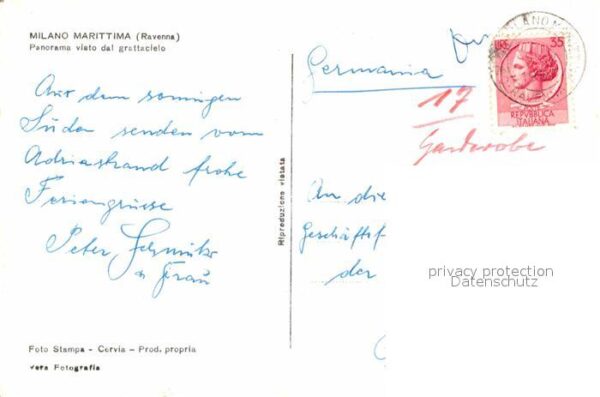 MILANO MARITTIMA (Ravenna)
Panorama visto dal grattacielo
Aus dem sonnigen
Süden senden vom
Adriastrand frohe
Feriengrüsse
Peter
u Frau
Foto Stampa - Cervia - Prod. propria
vera Fotografia
Riproduzione vietata
Germania
17
Garderobe
LIRE 35
REPVBBLICA
ITALIANA
An die
Geschäftsf
der
privacy protection
Datenschutz